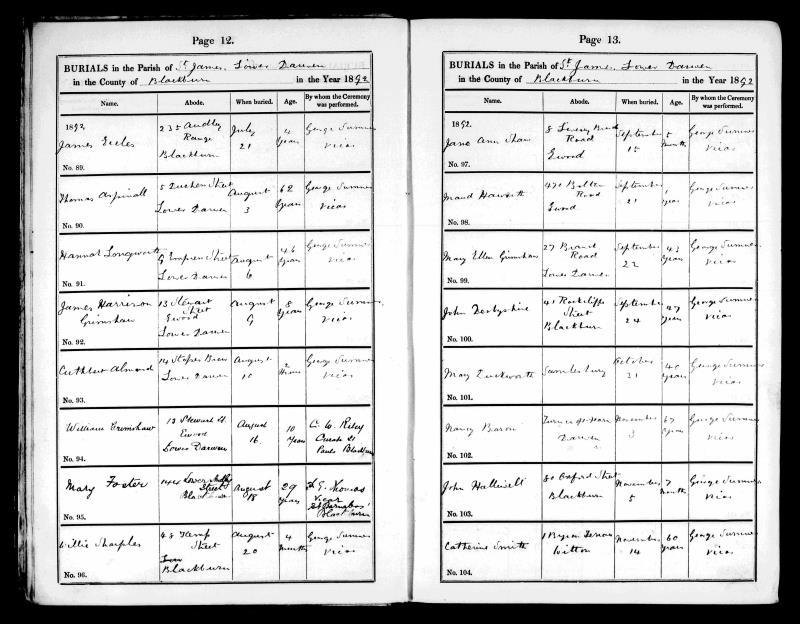 Page 12.
BURIALS in the Parish of St. James, Lower Darwen
in the County of Blackburn in the Year 1892
Name. Abode. When buried. Age. By whom the Ceremony was performed.
1892
James Eccles
No. 89.
235 Audley
Range
Blackburn
July
21
4
years
George Sumner
Vicar
Thomas Aspinall
No. 90.
5 Street
Lower Darwen
August
3
62
years
George Sumner
Vicar
Hannah Longworth
No. 91.
9 Empress Street
Lower Darwen
August
6
46
years
George Sumner
Vicar
James Harrison
Grimshaw
No. 92.
13 Stewart
Street
Ewood
Lower Darwen
August
9
8
years
George Sumner
Vicar
Cuthbert Almond
No. 93.
14 Stopes Brow
Lower Darwen
August
10
2
George Sumner
Vicar
William Grimshaw
No. 94.
13 Steward St.
Ewood
Lower Darwen
August
16
10
years
C. W. Riley
Curate St
Pauls Blackburn
Mary Foster
No. 95.
144 Lower Audley
Street
Blackburn
August
18
29
years
E. Thomas
Vicar
St Barnabas'
Blackburn
Willie Sharples
No. 96.
48 Kemp
Street
Blackburn
August
20
4
months
George Sumner
Vicar
Page 13.
BURIALS in the Parish of St. James, Lower Darwen
in the County of Blackburn in the Year 1892
Name. Abode. When buried. Age. By whom the Ceremony was performed.
1892.
Jane Ann Shaw
No. 97.
8
Road
Ewood
September
15
5
months
George Sumner
Vicar
Maud Haworth
No. 98.
471 Bolton
Road
Ewood
September
21
1
year
George Sumner
Vicar
Mary Ellen Grimshaw
No. 99.
27 Branch
Road
Lower Darwen
September
22
43
years
George Sumner
Vicar
John Derbyshire
No. 100.
41 Rockcliffe
Street
Blackburn
September
24
47
years
George Sumner
Vicar
May Duckworth
No. 101.
Samlesbury
October
31
40
years
George Sumner
Vicar
Nancy Baron
No. 102.
Darwen
November
3
67
years
George Sumner
Vicar
John Halliwell
No. 103.
80 Oxford Street
Blackburn
November
5
7
months
George Sumner
Vicar
Catherine Smith
No. 104.
1 Byrom Terrace
Witton
November
14
60
years
George Sumner
Vicar